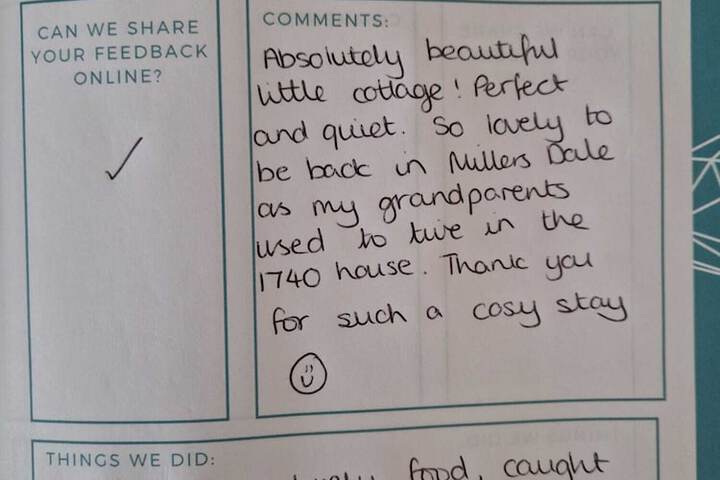 CAN WE SHARE
YOUR FEEDBACK
ONLINE?
✓
COMMENTS:
Absolutely beautiful
little cottage! Perfect
and quiet. So lovely to
be back in Millers Dale
as my grandparents
used to live in the
1740 house. Thank you
for such a cosy stay
THINGS WE DID:
food, caught